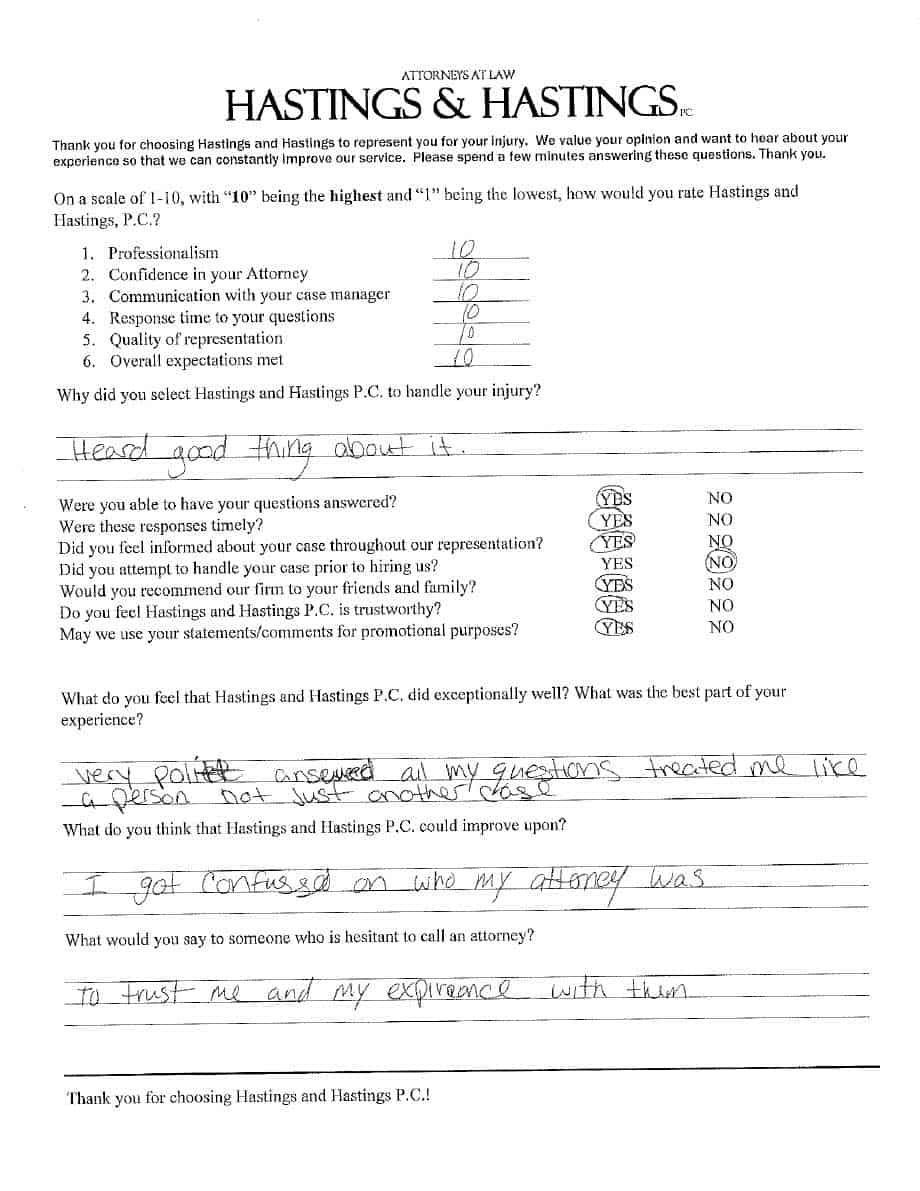 ATTORNEYS AT LAW
HASTINGS & HASTINGS PC
Thank you for choosing Hastings and Hastings to represent you for your injury. We value your opinion and want to hear about your
experience so that we can constantly improve our service. Please spend a few minutes answering these questions. Thank you.
On a scale of 1-10, with “10” being the highest and “1” being the lowest, how would you rate Hastings and
Hastings, P.C.?
1. Professionalism 10
2. Confidence in your Attorney 10
3. Communication with your case manager 10
4. Response time to your questions 10
5. Quality of representation 10
6. Overall expectations met 10
Why did you select Hastings and Hastings P.C. to handle your injury?
Heard good thing about it.
Were you able to have your questions answered? YES NO
Were these responses timely? YES NO
Did you feel informed about your case throughout our representation? YES NO
Did you attempt to handle your case prior to hiring us? YES NO
Would you recommend our firm to your friends and family? YES NO
Do you feel Hastings and Hastings P.C. is trustworthy? YES NO
May we use your statements/comments for promotional purposes? YES NO
What do you feel that Hastings and Hastings P.C. did exceptionally well? What was the best part of your
experience?
very all my questions treated me like
a person not just another case
What do you think that Hastings and Hastings P.C. could improve upon?
I got confussed on who my attorney was
What would you say to someone who is hesitant to call an attorney?
To trust me and my expireance with them
Thank you for choosing Hastings and Hastings P.C.!